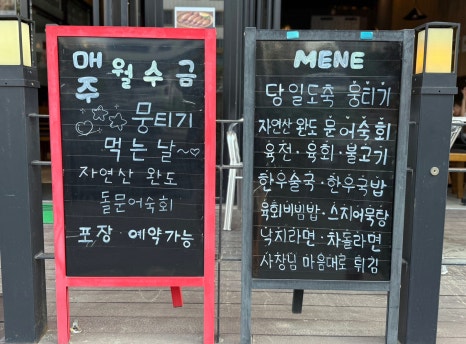 매주 월 수 금
뭉티기
먹는 날~♡
자연산 완도
돌문어숙회
포장 · 예약가능
MENE
당일도축 뭉티기
자연산 완도 문어숙회
육전 · 육회 · 불고기
한우술국 · 한우국밥
육회비빔밥 · 스지어묵탕
낙치라면 · 차돌라면
사장님 마음대로 튀김